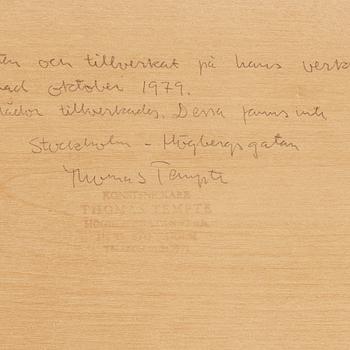 och tillverkat på hans verk
oktober 1979.
lådor tillverkades. Dessa fanns inte
Stockholm - Högbergsgatan
Thomas Tempte
KONSTSNICKARE
THOMAS TEMPTE